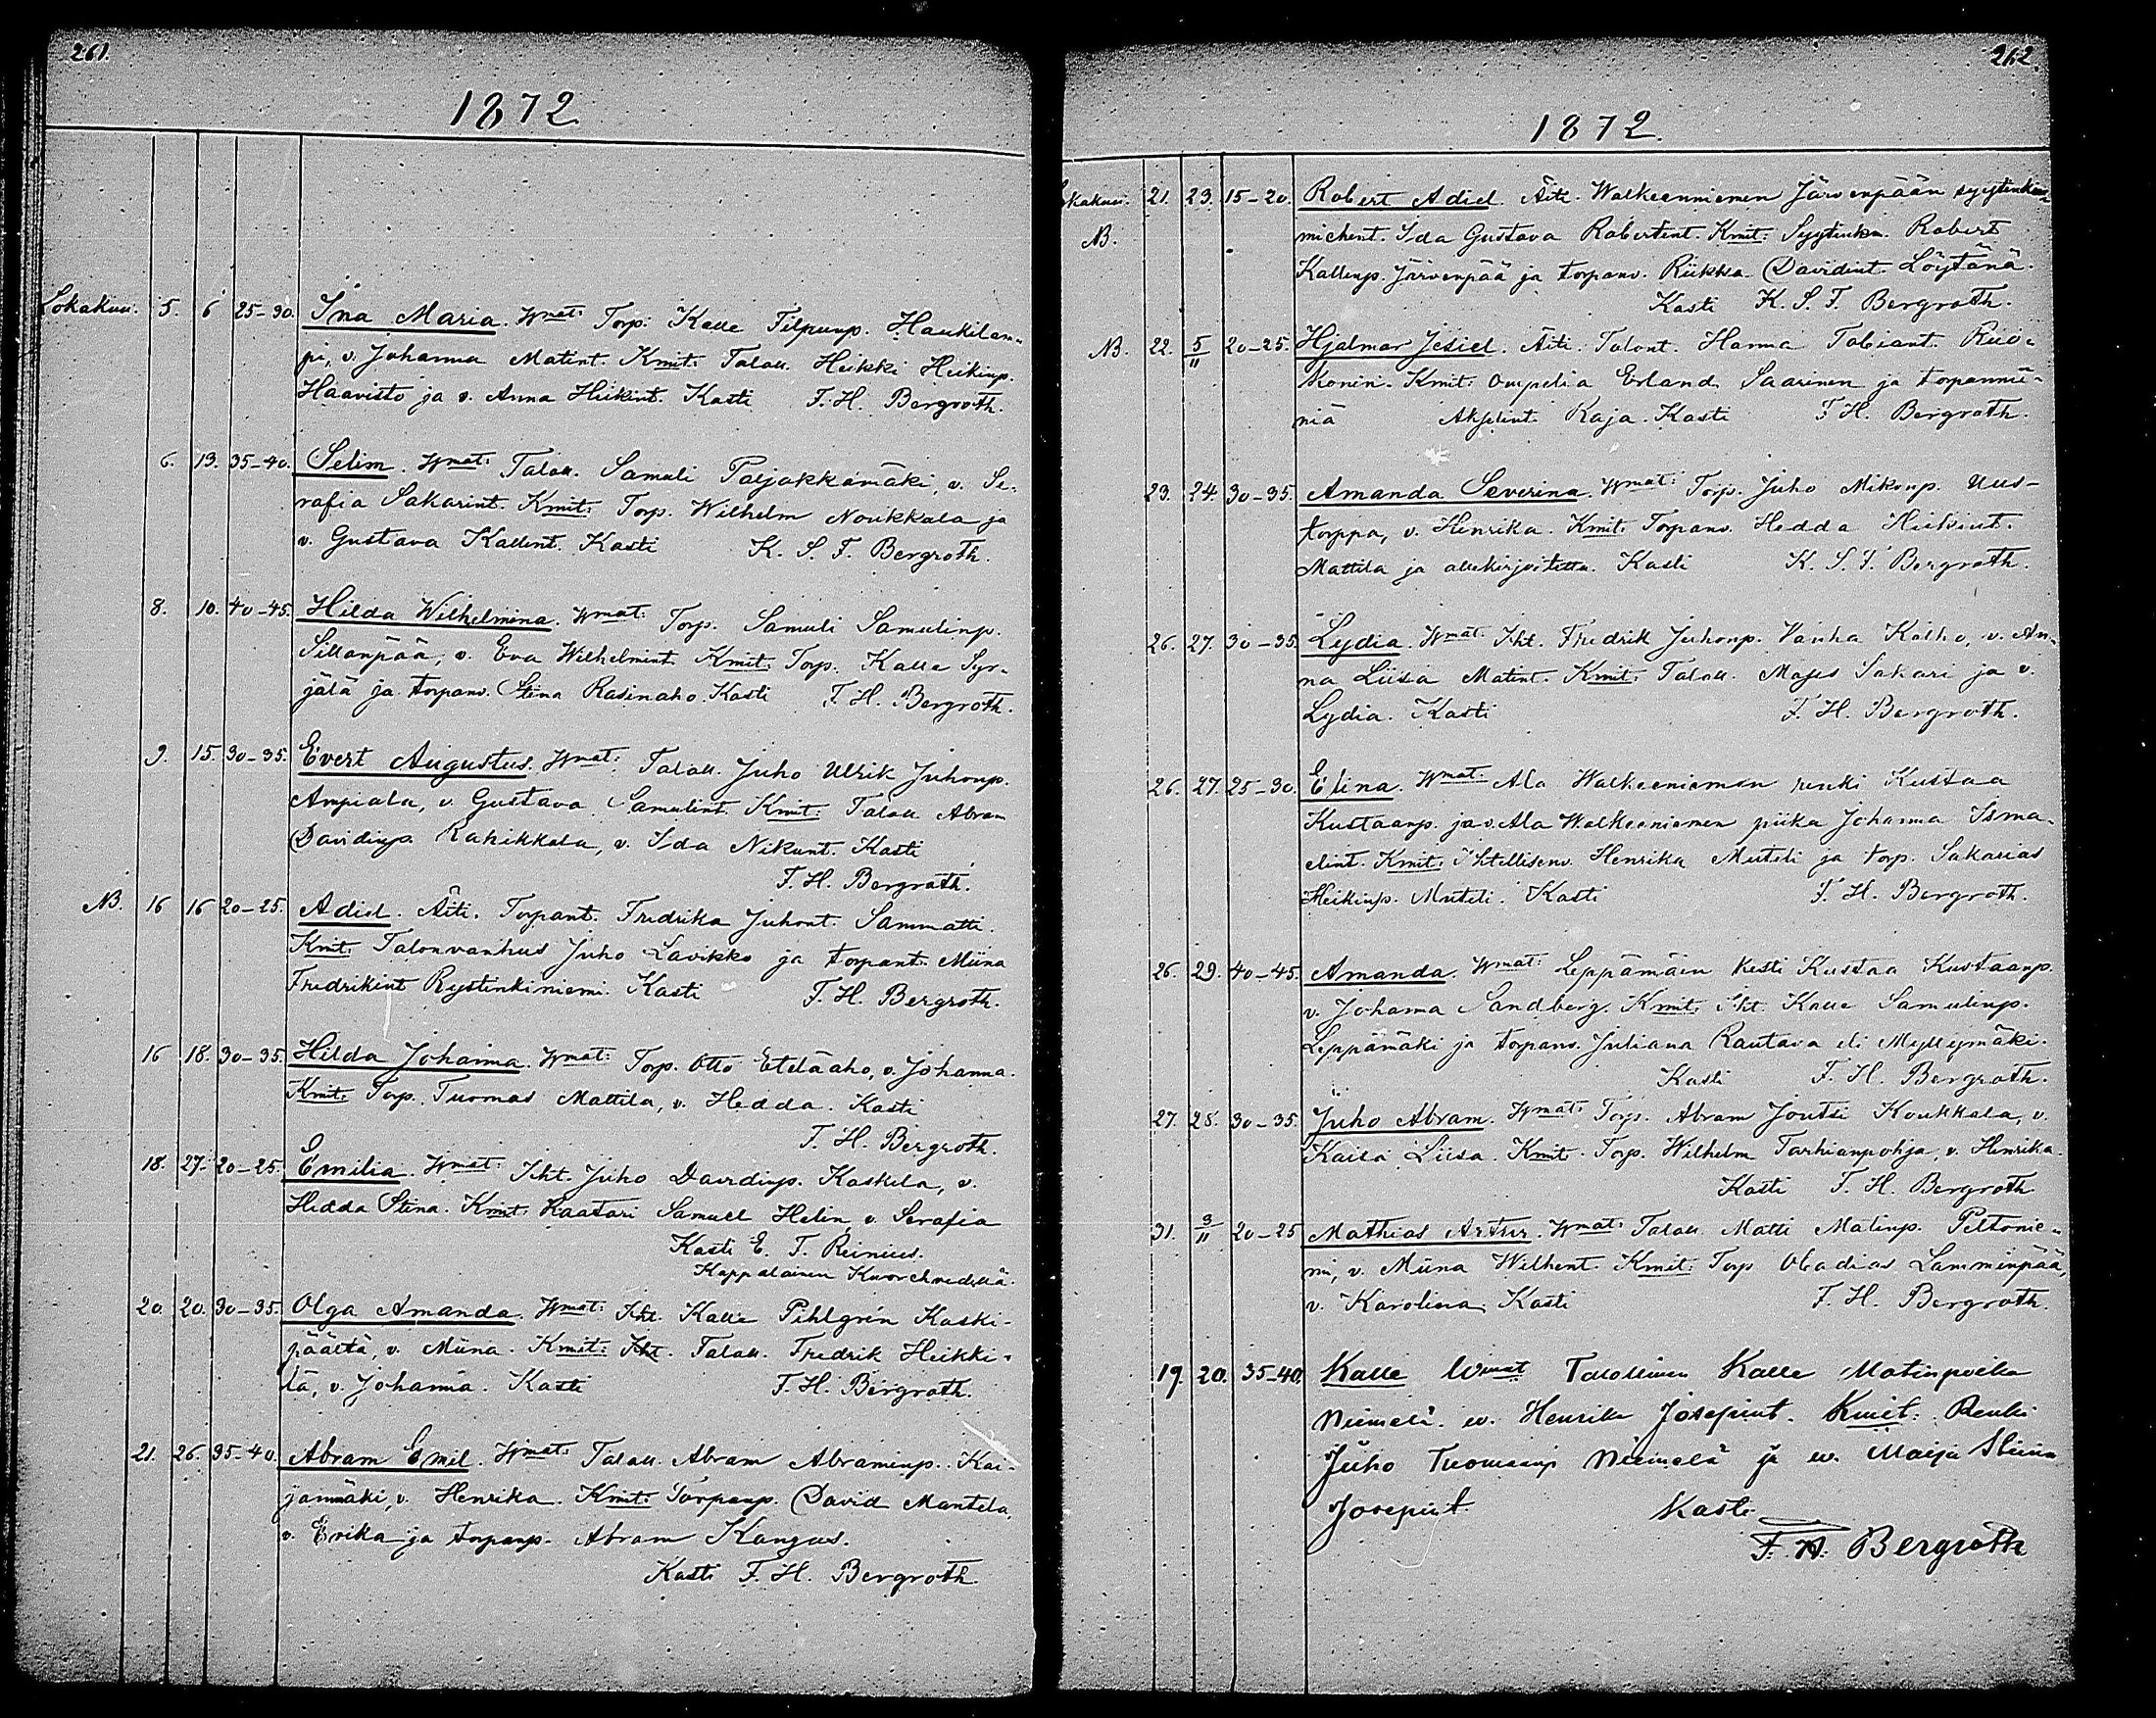 261.
1872
Lokakuu. 5. 6 25-30. Ina Maria. Wmat: Torp. Kalle Filpunp. Haukilam-
pi, v. Johanna Matint. Kmit: Talall. Heikki Heikinp.
Haavisto ja v. Anna Heikint. Kasti F. H. Bergroth.
6. 13. 35-40. Selim. Wmat: Talall. Samuli Paljakkamäki, v. Se-
rafia Sakarint. Kmit: Torp. Wilhelm Noukkala ja
v. Gustava Kallent. Kasti K. S. F. Bergroth.
8. 10. 40-45. Hilda Wilhelmina. Wmat: Torp. Samuli Samulinp.
Sillanpää, v. Eva Wilhelmint. Kmit: Torp. Kalle Syr-
jälä ja torpanv. Stina Rasinaho. Kasti F. H. Bergroth.
9. 15. 30-35. Evert Augustus. Wmat: Talall. Juho Ulrik Juhonp.
Ampiala, v. Gustava Samulint. Kmit: Talall Abram
Davidinp Rahikkala, v. Ida Nikunt. Kasti
F. H. Bergroth.
NB. 16 16 20-25. Adiel. Äiti. Torpant. Fredrika Juhont. Sammatti.
Kmit: Talonvanhus Juho Lavikko ja torpant. Miina
Fredrikint Rystinkiniemi. Kasti F. H. Bergroth.
16 18. 30-35. Hilda Johanna. Wmat: Torp. Otto Eteläaho, v. Johanna.
Kmit: Torp. Tuomas Mattila, v. Hedda. Kasti
F. H. Bergroth.
18. 27. 20-25. Emilia. Wmat: Iht. Juho Davidinp. Kaskela, v.
Hedda Stina. Kmit: Raatari Samuel Helin, v. Serafia
Kasti E. F. Reinius.
Kappalainen Kuorehvedellä.
20. 20. 30-35. Olga Amanda. Wmat: Iht. Kalle Pihlgrén Kaski-
päältä, v. Miina. Kmit: Iht. Talall. Fredrik Heikki-
lä, v. Johanna. Kasti F. H. Bergroth.
21. 26. 35-40. Abram Emil. Wmat: Talall. Abram Abraminp. Kai-
janmäki, v. Henrika. Kmit: Torpanp. David Mantela,
v. Erika ja torpanp. Abram Kangas.
Kasti F. H. Bergroth.
262
1872.
kakuu. 21. 23. 15-20. Robert Adiel. Äiti. Walkeenniemen Järvenpään syytinki-
NB. miehent. Ida Gustava Robertint. Kmit: Syytinkm. Robert
Kallenp. Järvenpää ja torpanv. Riikka Davidint. Löytänä.
Kasti K. S. F. Bergroth.
NB. 22. 5/11 20-25. Hjalmar Jesiel. Äiti. Talont. Hanna Tobiant. Ruo-
konen. Kmit: Ompelia Erland Saarinen ja torpanmii-
niä Akselint. Raja. Kasti F. H. Bergroth.
23. 24. 30-35. Amanda Severina. Wmat: Torp. Juho Mikonp. Uus-
torppa, v. Henrika. Kmit: Torpanv. Hedda Heikint.
Mattila ja allekirjoitettu. Kasti K. S. F. Bergroth.
26. 27. 30-35. Lydia. Wmat: Iht. Fredrik Juhonp. Vanha Kalho, v. An-
na Liisa Matint. Kmit: Talall. Majes Sakari ja v.
Lydia. Kasti F. H. Bergroth.
26. 27. 25-30. Elina. Wmat: Ala Walkeeniemen renki Kustaa
Kustaanp. ja v. Ala Walkeeniemen piika Johanna Isma-
elint. Kmit: Ihtellisenv. Henrika Muteli ja torp. Sakarias
Heikinp. Muteli. Kasti F. H. Bergroth.
26. 29. 40-45. Amanda. Wmat: Leppämäen kesti Kustaa Kustaanp.
v. Johanna Sandberg. Kmit: Iht. Kalle Samulinp.
Leppämäki ja torpanv. Juliana Rautava eli Myllymäki.
Kasti F. H. Bergroth.
27. 28. 30-35. Juho Abram. Wmat: Torp. Abram Joutsi Koukkala, v.
Kaisa Liisa. Kmit. Torp. Wilhelm Tarhianpohja, v. Henrika.
Kasti F. H. Bergroth
31. 3/11 20-25 Mathias Artur. Wmat: Talall. Matti Matinp. Peltonie-
mi, v. Miina Wilhent. Kmit: Torp Obadias Lamminpää,
v. Karolina. Kasti F. H. Bergroth.
19. 20. 35-40. Kalle Wmat Talollinen Kalle Matinpoika
Niemelä. w. Henrika Josepint. Kmit: Renki
Juho Tuomaanp Niemelä ja w. Maija Stiina
Josepint. Kasti
F. H. Bergroth